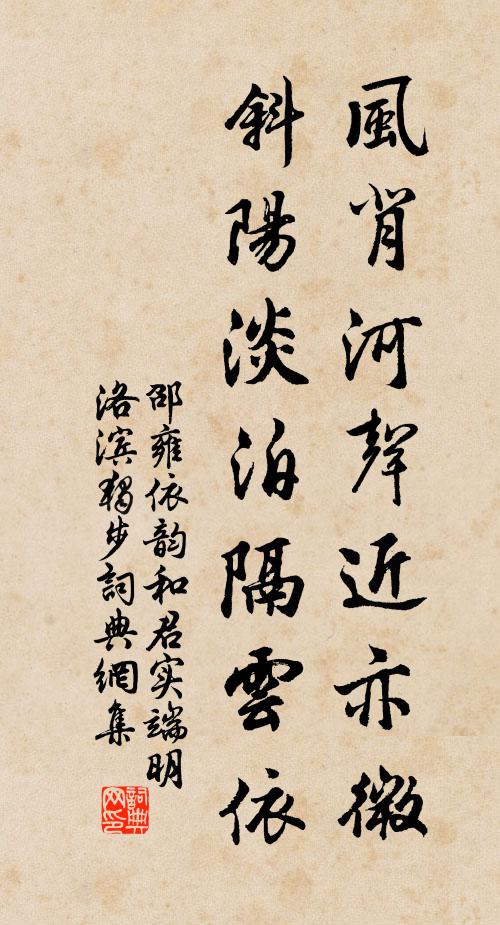 風背河聲近亦微
斜陽淡泊隔雲依
邵雍依韵和君实端明
洛滨獨步詞典網集
詞典網印